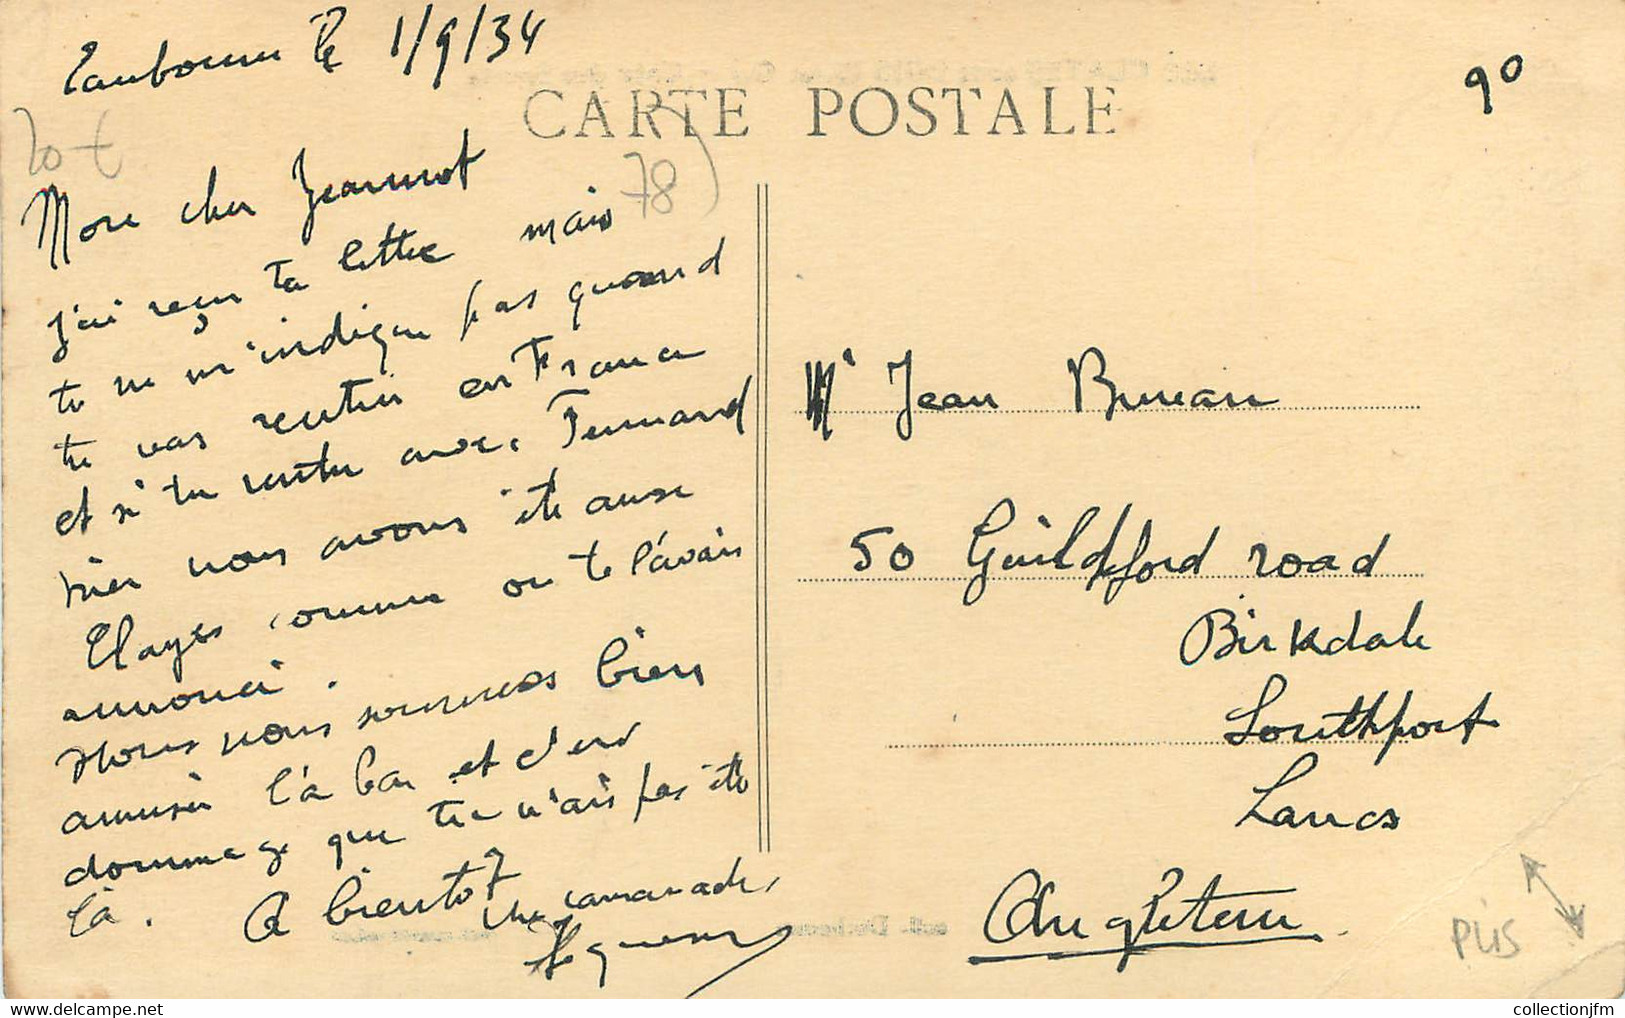 le 1/9/34
CARTE POSTALE
90
20 €
78
Mon cher Jeannot
J'ai reçu ta lettre mais
tu ne m'indique pas quand
tu vas rentrer en France
et si tu rentre avec Fernand
hier nous avons été aux
Clayes comme on te l'avais
annoncé.
Nous nous sommes bien
amusé là bas et c'est
dommage que tu n'ais pas été
là. A bientot
Un camarade
Mr Jean Buneau
50 Guildford road
Birkdale
Southport
Lancs
Angleterre
PLIS
collectionjfm